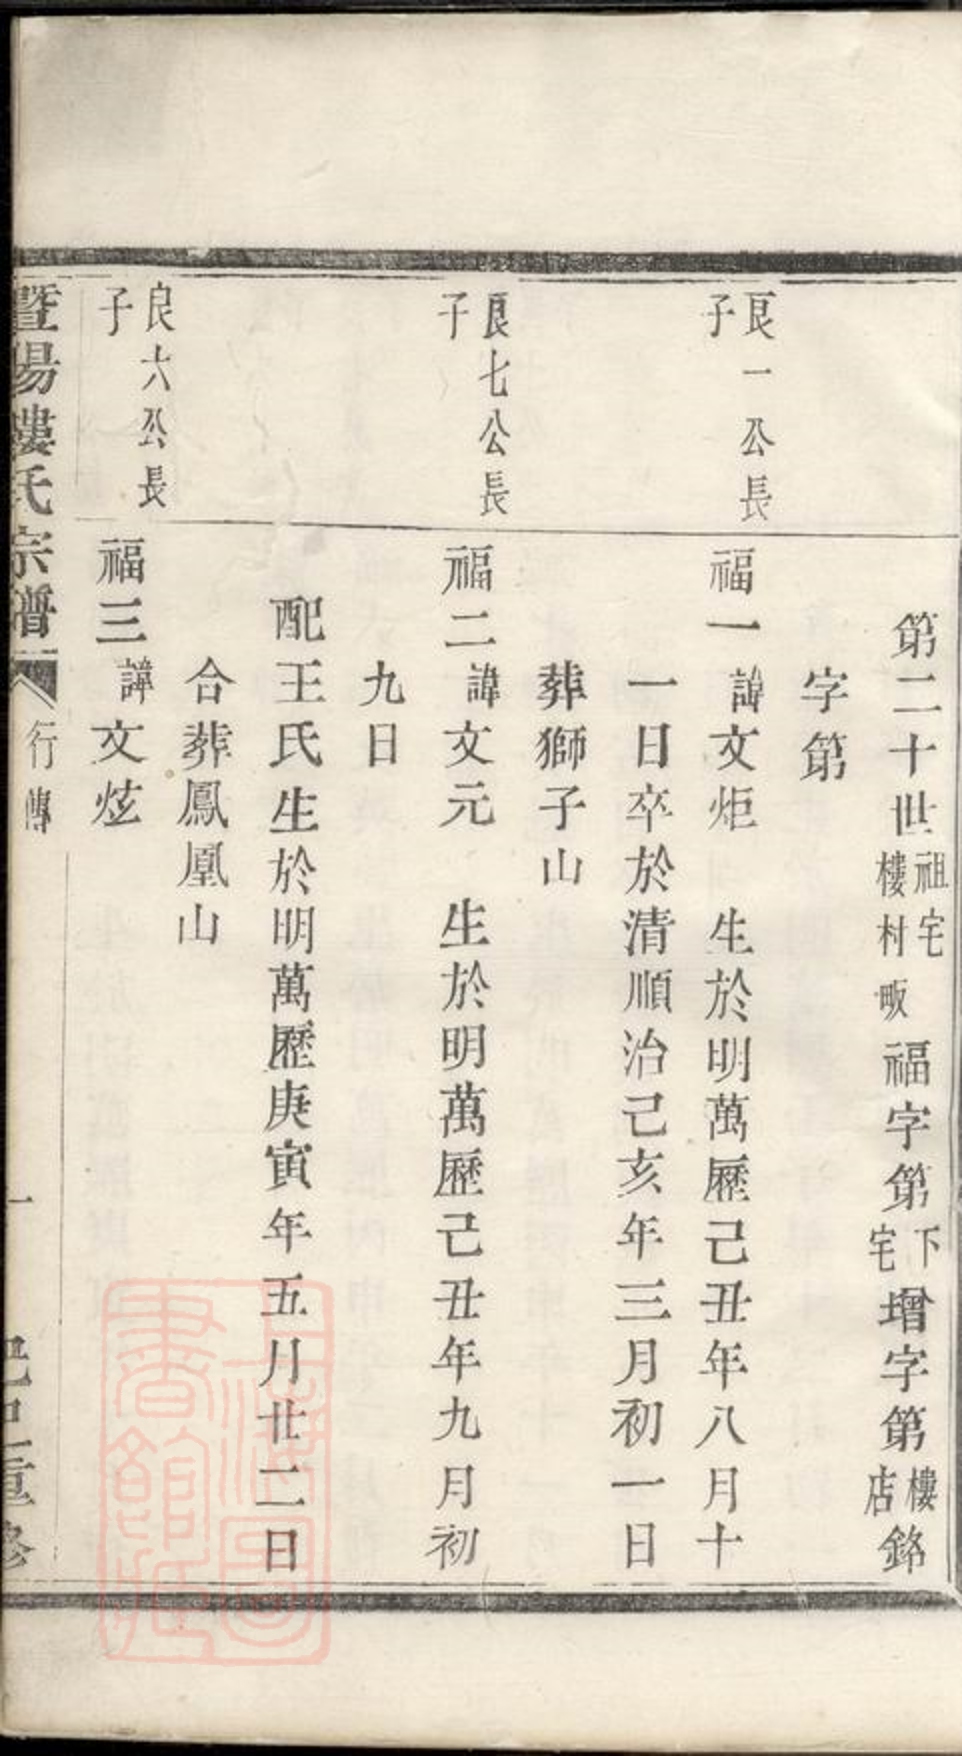 第二十世祖宅樓村畈福字第下宅增字第樓店銘
字第
良一公長子
福一諱文炬 生於明萬歷己丑年八月十
一日卒於清順治己亥年三月初一日
葬獅子山
良七公長子
福二諱文元 生於明萬歷己丑年九月初
九日
配王氏生於明萬歷庚寅年五月廿二日
合葬鳳凰山
良六公長子
福三諱文炫
暨陽樓氏宗譜 行傳 一 重修
上海圖書館藏